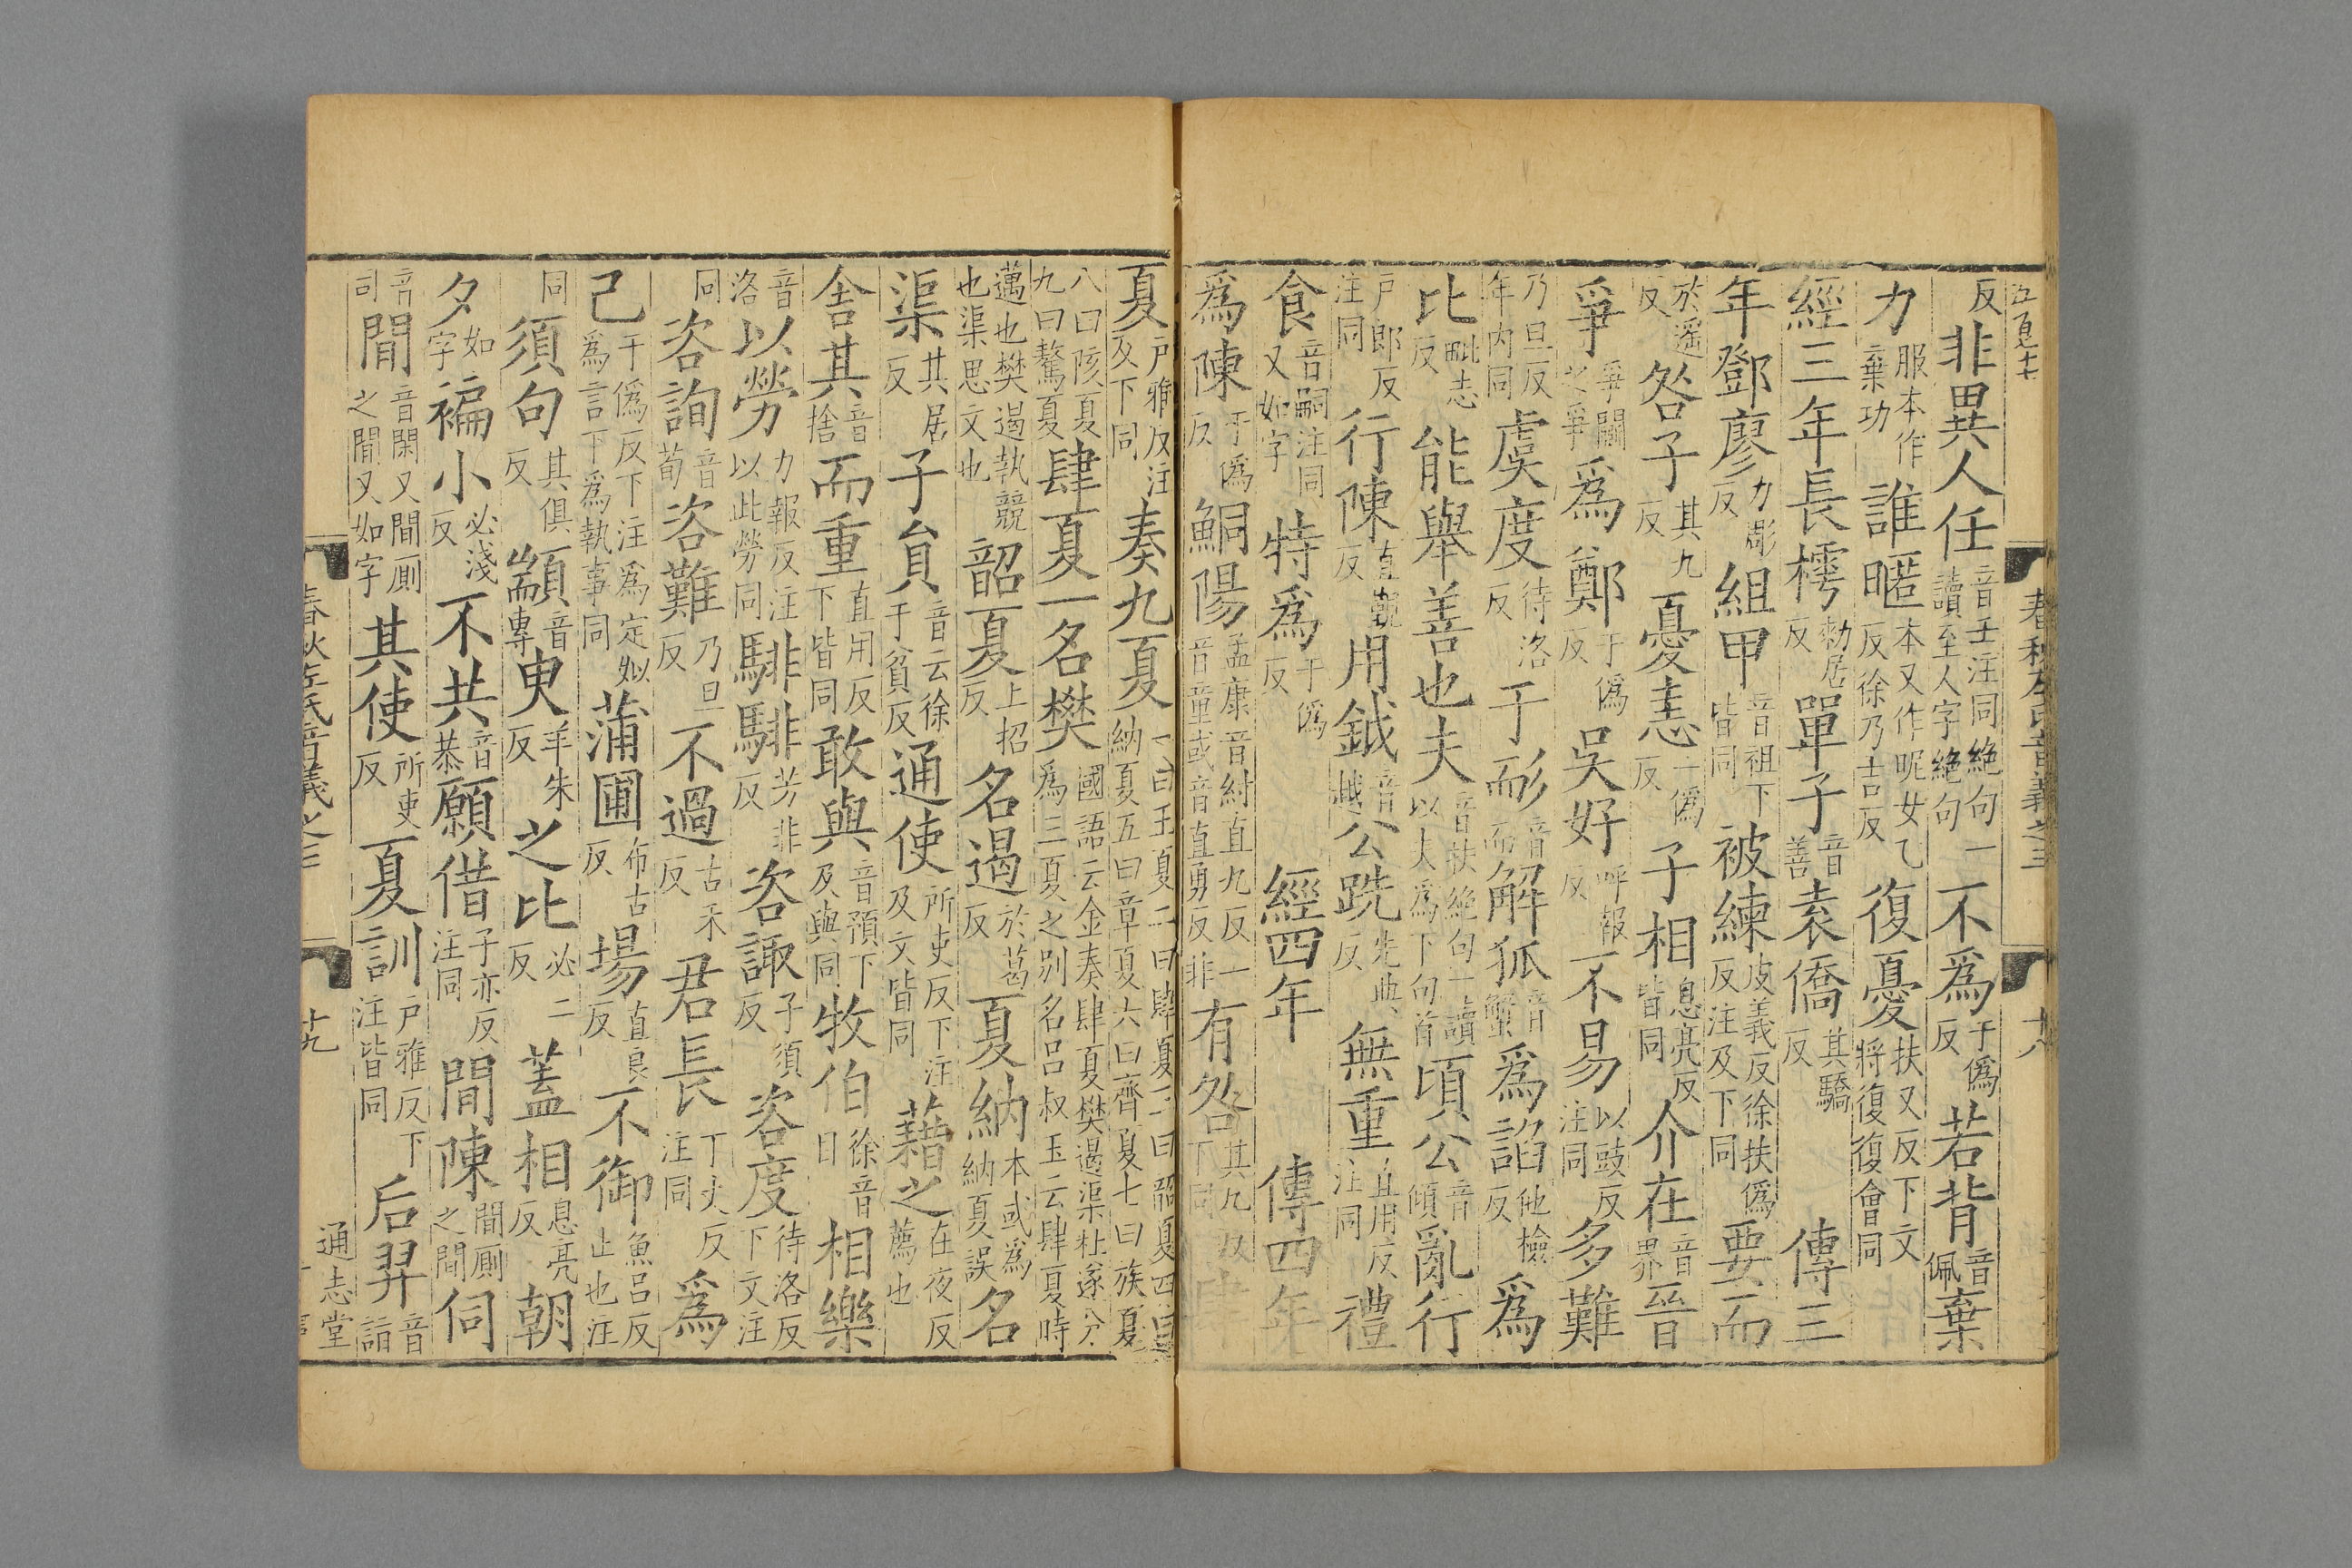 春秋左氏音義之三 十八
反非異人任音壬注同絶句一讀至人字絶句不爲于僞反若背音佩棄
力服本作棄功誰暱本又作昵女乙反徐乃吉反復憂扶又反下文將復復會同
經三年長樗勑居反單子音善袁僑其驕反傳三
年鄧廖力彫反組甲音祖下皆同被練皮義反徐扶僞反注及下同要而
於遥反咎子其九反憂恚一僞反子相息亮反皆同介在音界晉
爭爭鬭之爭爲鄭于僞反吳好呼報反不易以豉反注同多難
乃旦反年内同虞度待洛反于耏音而解狐音蟹爲諂他檢反爲
比毗志反能舉善也夫音扶絶句一讀以夫爲下句首頃公音傾亂行
戸郎反注同行陳直覲反用鉞音越公跣先典反無重直用反注同禮
食音嗣注同又如字特爲于僞反經四年傳四年
爲陳于僞反鮦陽孟康音紂直九反一音童或音直勇反非有咎其九反下同
夏戸雅反注及下同奏九夏一曰王夏二曰肆夏三曰韶夏四曰納夏五曰章夏六曰齊夏七曰族夏
八曰陔夏九曰驁夏肆夏一名樊國語云金奏肆夏樊遏渠杜遂分爲三夏之别名吕叔玉云肆夏時
邁也樊遏執競也渠思文也韶夏上招反名遏於葛反夏納本或爲納夏誤名
渠其居反子員音云徐于貧反通使所吏反下注及文皆同藉之在夜反薦也
舍其音捨而重直用反下皆同敢與音預下及與同牧伯徐音目相樂
音洛以勞力報反注以此勞同騑騑芳非反咨諏子須反咨度待洛反下文注
同咨詢音荀咨難乃旦反不過古禾反君長丁丈反注同爲
己于僞反下注爲定姒爲言下爲執事同蒲圃布古反場直良反不御魚吕反止也注
同須句其俱反顓音專臾羊朱反之比必二反蓋相息亮反朝
夕如字褊小必淺反不共音恭願借子亦反注同間陳間厠之間伺
音司間音閑又間厠之間又如字其使所吏反夏訓戸雅反下注皆同后羿音詣
春秋左氏音義之三 十九 通志堂